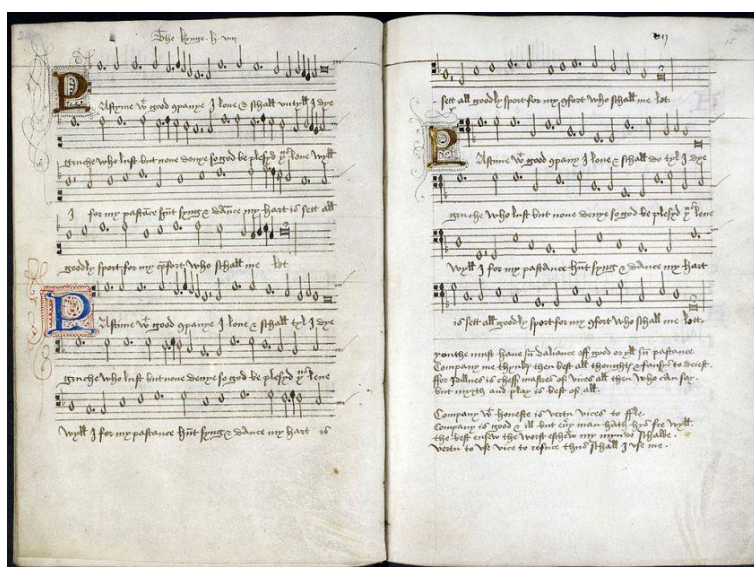 The kynge. h. viij
Pastyme wt good companye I love & schall untyll I dye
gruche who lust but none denye so god be plesyd thus leve wyll
I for my pastace hunt syng & dance my hart is sett all
goodly sport for my comfort who schall me let
Pastyme wt good companye I love & schall tyl I dye
gruche who lust but none denye so god be plesyd thus leve
wyll I for my pastance hunt syng & dance my hart is
sett all goodly sport for my comfort who shall me let
Pastime wt good company I love & schall do tyl I dye
gruche who lust but none denye so god be plesyd thus leve
wyll I for my pastance hunt syng & dance my hart
is sett all goodly sport for my comfort who shall me lett.
youthe must have sum daliance off good or yll sum pastance.
Company me thynks then best all thoughts & fansys to deiest.
ffor Idillnes is cheff mastres of vices all then who can say.
but myrth and play is best of all.
Company wt honeste is vertu vices to ffle.
Company is good & ill but every man hath hys fre wyll.
the best ensew the worst eschew my mynde schalbe.
vertu to use vice to refuce thus schall I use me.